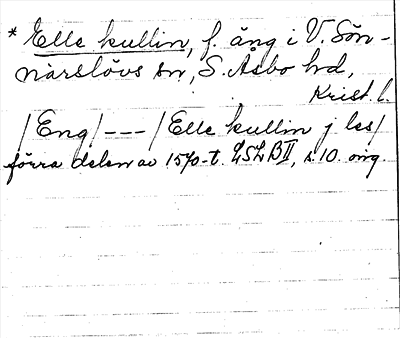 * Elle kullin, f. äng i V. Sön-
närslövs sn, S. Åsbo hd,
Krist. l.
/Eng/ --- /Elle kullin j les/
förra delen av 1570-t. LSLBII, s. 10. orig.